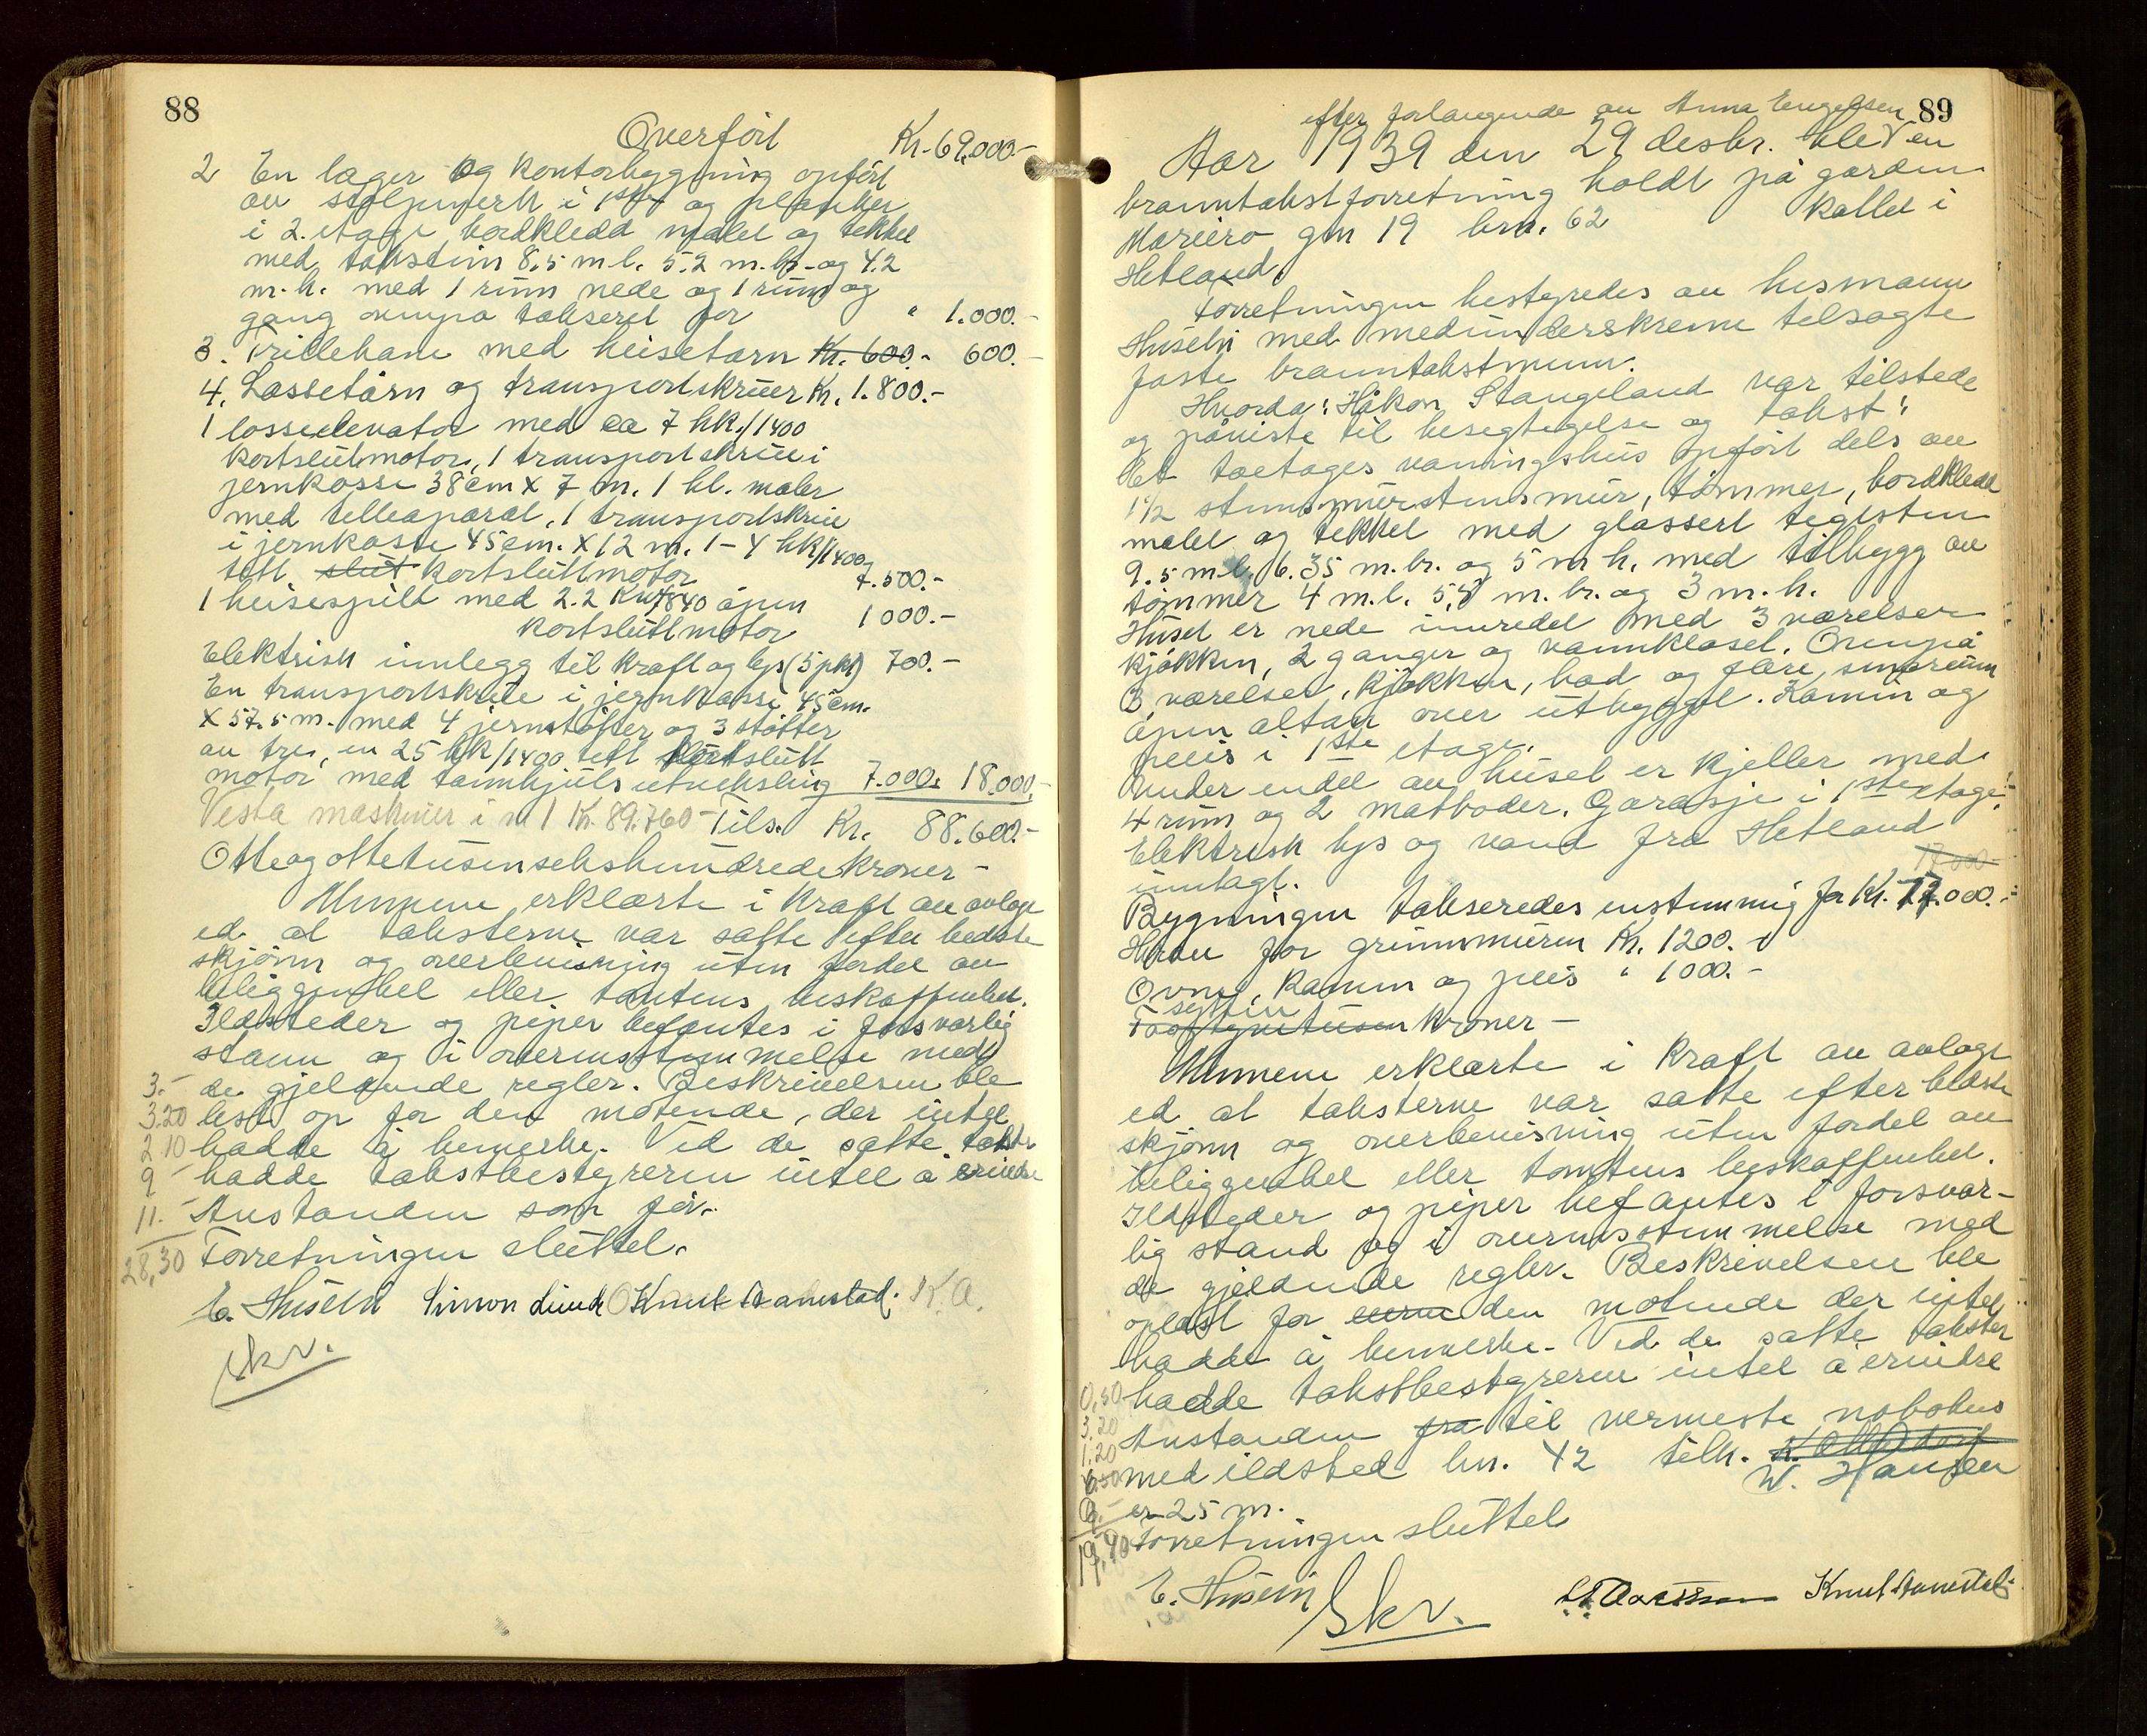 88
Overført Kr. 69.000.-
2 En lager og kontorbygning opført
av stolpeverk i 1ste og planker
i 2. etage, bordkledd malet og tekket
med takstein 8.5 m l. 5.2 m. br. og 4.2
m. h. med 1 rum nede og 1 rum og
gang ovenpå takseret for " 1.000.-
3. Trillebane med heisetårn Kr. 600.- 600.-
4. Lassetårn og transportskruer Kr. 1.800.-
1 losseelevator med ca 7 hk./1400
kortslutmotor, 1 transportskrue i
jernkasse 38 cm x 7 m. 1 hl. måler
med telleaparat, 1 transportskrue
i jernkasse 45 cm. x 12 m. 1 - 4 hk/1400
tett slut kortsluttmotor 7.500.-
1 heisespill med 2.2 Kw/840 åpen
kortsluttmotor 1000.-
Elektrisk innlegg til kraft og lys (5 pkt) 700.-
En transportskrue i jernkasse 45 cm.
x 57.5 m. med 4 jernstøtter og 3 støtter
av tre, en 25 hk/1400 tett kortslutt
motor med tannhjuls utveksling 7.000. 18.000.-
Vesta maskiner i nr 1 Kr. 89.760 - Tils. Kr. 88.600.-
Otteogottetusensekshundrede kroner -
Mennene erklærte i kraft av avlagt
ed at taksterne var satte efter bedste
skjønn og overbevisning uten fordel av
beliggenhet eller tomtens beskaffenhet.
Ildsteder og piper befantes i forsvarlig
stann og i overensstemmelse med
de gjeldende regler. Beskrivelsen ble
3.-
3.20 lest op for den møtende, der intet
2 10 hadde å bemerke. Ved de satte takster
9 - hadde takstbestyreren intet å erindre
11.- Avstanden som før.
28,30 Forretningen sluttet.
E. Huseby Simon Lunde Knut Aanestad. K.A.
Skr.
89
efter forlangende av Anna Engelsen
Aar 1939 den 29 desbr. blev en
branntakstforretning holdt på garden
Mariero gn 19 brn. 62 kallet i
Hetland.
Forretningen bestyredes av lensmann
Huseby med medunderskrevne tilsagte
faste branntakstmenn.
Hvorda: Håkon Stangeland var tilstede
og påviste til besegtigelse og takst:
Et toetages våningshus opført dels av
1 1/2 stens murstensmur, tømmer, bordkledd
malet og tekket med glassert teglsten
9.5 m l. 6.35 m. br. og 5 m h. med tilbygg av
tømmer 4 m. l. 5,5 m. br. og 3 m. h.
Huset er nede innredet med 3 værelser
kjøkken, 2 ganger og vannkloset. Ovenpå
3 værelser, kjøkken, bad og flere smårum
åpen altan over utbygget. Kamin og
peis i 1ste etage.
Under endel av huset er kjeller med
4 rum og 2 matboder. Garasje i 1ste etage.
Elektrisk lys og vand fra Hetland
innlagt. 17.000-
Bygningen takseredes enstemmig for Kr. 17.000.-
Herav for grunnmuren Kr. 1200.-
Ovner, kamin og peis " 1000.-
sytten
Toogtyvetusen kroner -
Mennene erklærte i kraft av avlagt
ed at taksterne var satte efter bedste
skjønn og overbevisning uten fordel av
beliggenhet eller tomtens beskaffenhet.
Ildsteder og piper befantes i forsvar-
lig stand og i overensstemmelse med
de gjeldende regler. Beskrivelsen ble
oplæst for den møtende der intet
hadde å bemerke. Ved de satte takster
0,50 hadde takstbestyreren intet å erindre
3.20 Avstanden fra til nermeste nabohus
1.20
6.50 med ildsted bn. 42 tilh.
W. Hansen
9.- er 25 m.
19,90 Forretningen sluttet
E. Huseby Knut Aanestad
Skr.